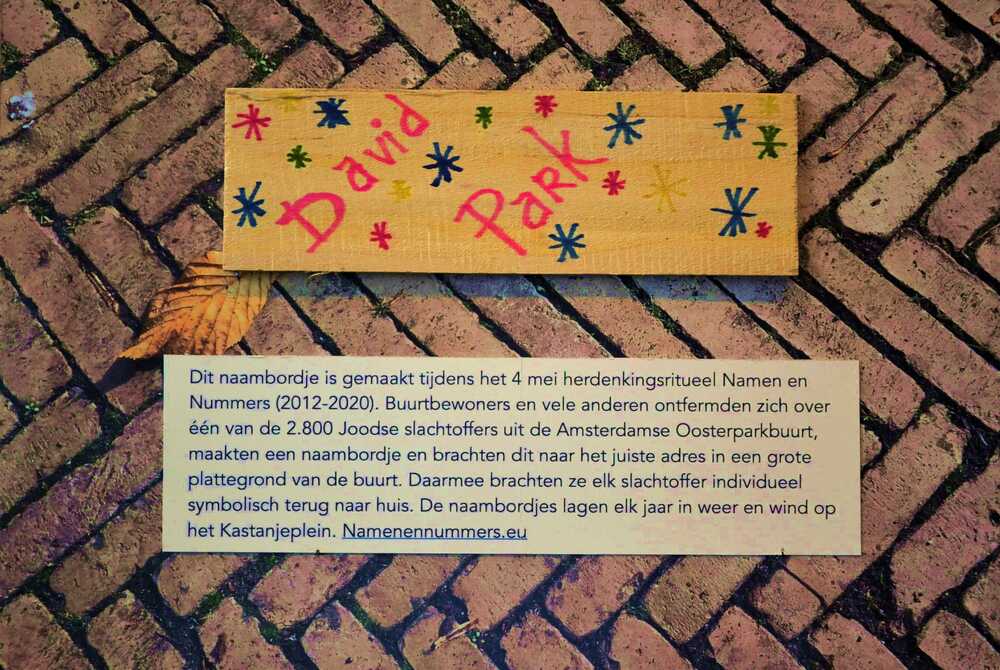 David
Park
Dit naambordje is gemaakt tijdens het 4 mei herdenkingsritueel Namen en
Nummers (2012-2020). Buurtbewoners en vele anderen ontfermden zich over
één van de 2.800 Joodse slachtoffers uit de Amsterdamse Oosterparkbuurt,
maakten een naambordje en brachten dit naar het juiste adres in een grote
plattegrond van de buurt. Daarmee brachten ze elk slachtoffer individueel
symbolisch terug naar huis. De naambordjes lagen elk jaar in weer en wind op
het Kastanjeplein. Namenennummers.eu